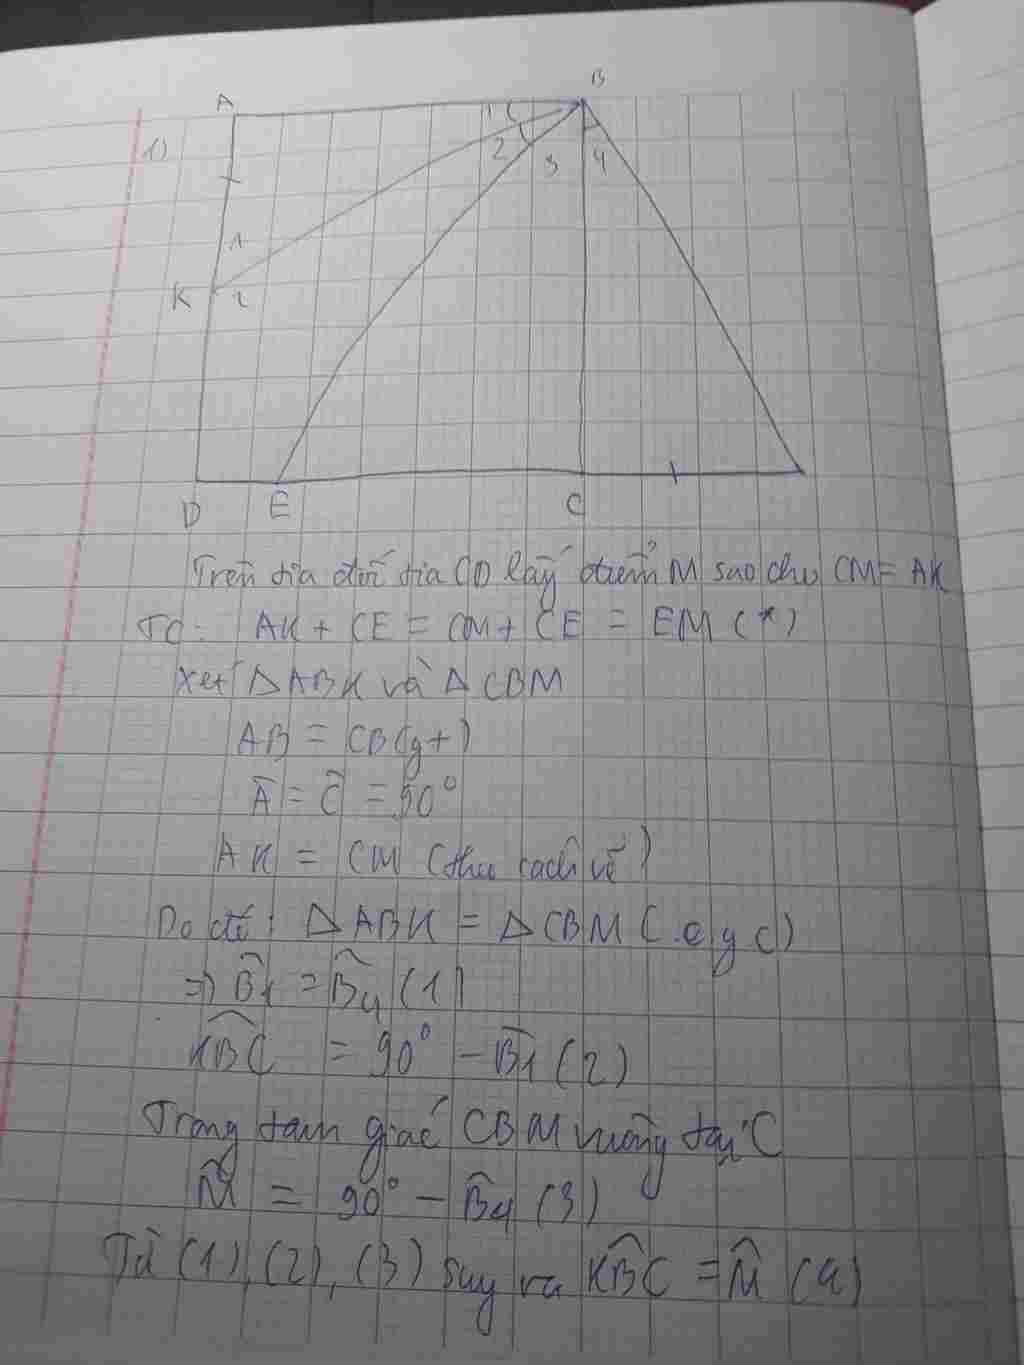 A
B
1)
1
2
3
4
1
K
2
D
E
C
Trên tia đối tia CD lấy điểm M sao cho CM = AK
TC: AK + CE = CM + CE = EM (*)
Xét ΔABK và ΔCBM
AB = CB (gt)
Â = Ĉ = 90°
AK = CM (theo cách vẽ)
Do đó: ΔABK = ΔCBM (c g c)
=> B̂1 = B̂4 (1)
KBC = 90° - B̂1 (2)
Trong tam giác CBM vuông tại C
M̂ = 90° - B̂4 (3)
Từ (1), (2), (3) suy ra KBC = M̂ (4)